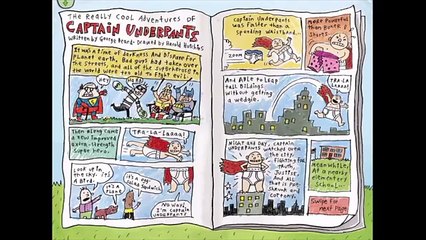 The Really Cool Adventures of
CAPTAIN UNDERPANTS
Written by George Beard • Drawn by Harold Hutchins
It was a time of darkness and
Planet earth. Bad guys had taken over
the streets, and all of the superheros in
the world were too old to fight evil.
HEY
Then along came
a new improved
extra-strength
Super hero.
TRA-LA-Laaaa!
Look up in
the sky. it's
A Bird.
it's A
PLANE
it's a
egg
Salad Sandwich
NO WAY,
I'm Captain
Underpants
Captain Underpants
was Faster than a
speeding waistband...
ZOOM
More Powerful
than Boxer
Shorts...
And Able to Leap
tall Bildings
Without getting
a wedgie.
TRA-LA
Laaaa!
Night and Day, Captain
Underpants watched
over the
city,
Fighting for
truth,
Justice,
And all
that is Pre-
Shrunk and
Cottony.
Meanwhile,
At a nearby
elementary
School...
Swipe for
next Page